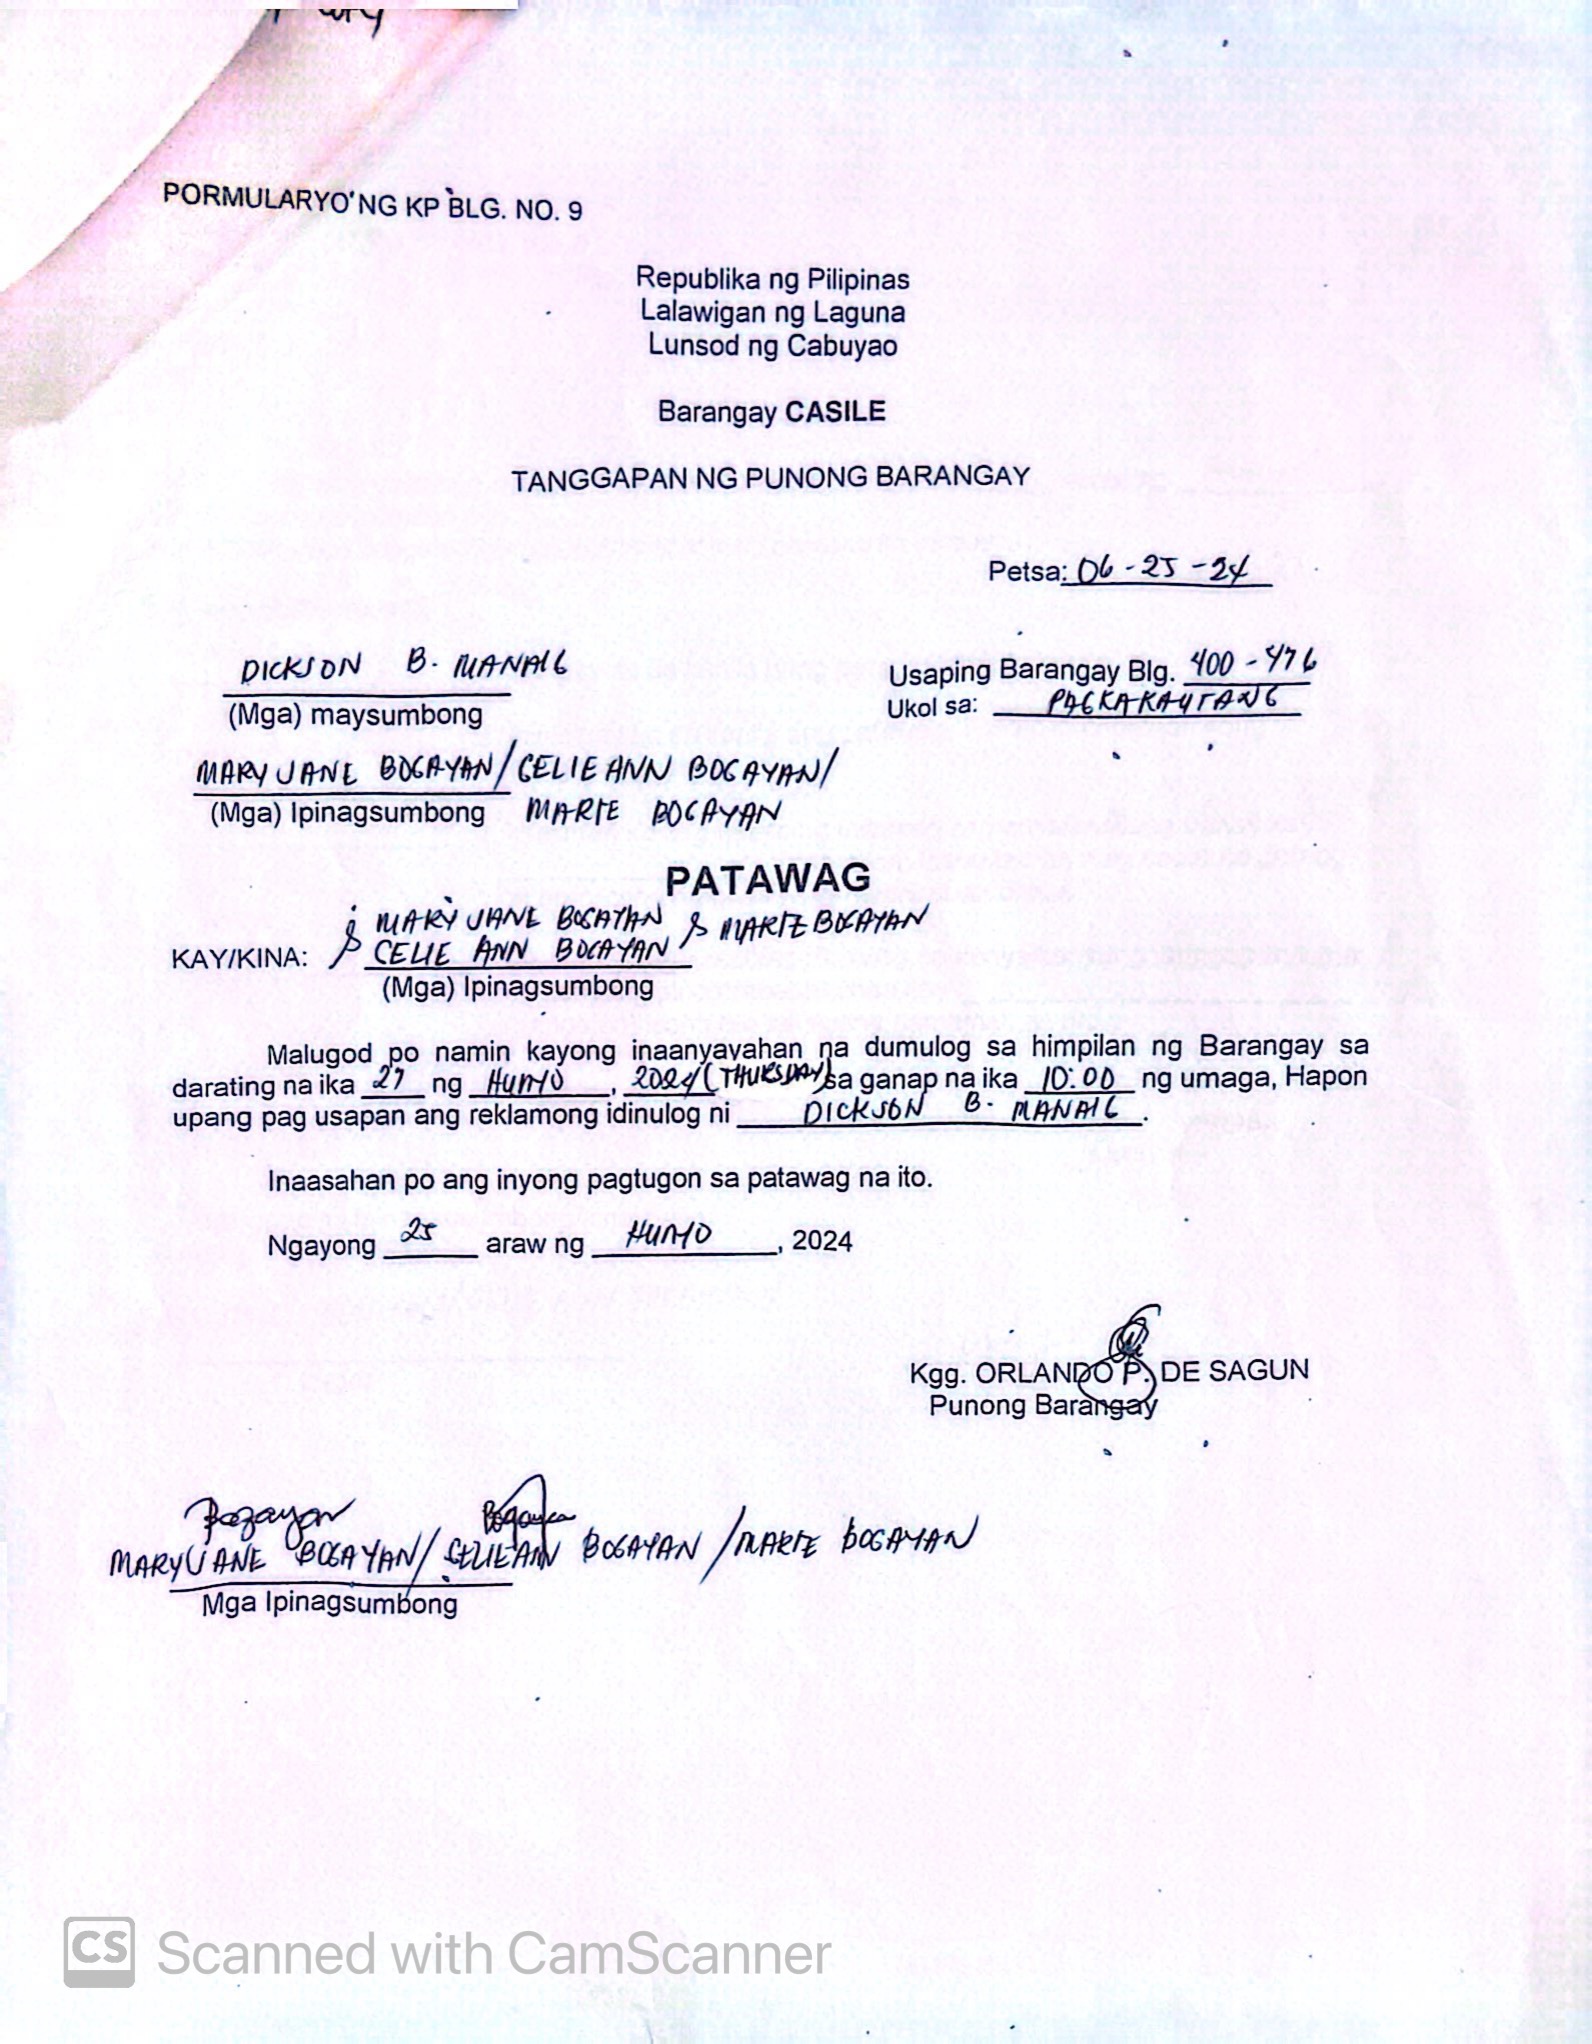 PORMULARYO NG KP BLG. NO. 9
Republika ng Pilipinas
Lalawigan ng Laguna
Lunsod ng Cabuyao
Barangay CASILE
TANGGAPAN NG PUNONG BARANGAY
Petsa: 06-25-24
DICKSON B. MANAIG
(Mga) maysumbong
Usaping Barangay Blg. 400-476
Ukol sa: PAGKAKAUTANG
MARY JANE BOGAYAN/CELIE ANN BOGAYAN/
(Mga) Ipinagsumbong MARIE BOGAYAN
PATAWAG
MARY JANE BOGAYAN & MARIE BOGAYAN
KAY/KINA: & CELIE ANN BOGAYAN
(Mga) Ipinagsumbong
Malugod po namin kayong inaanyavahan na dumulog sa himpilan ng Barangay sa
darating na ika 27 ng HUNYO, 2024 (THURSDAY) sa ganap na ika 10:00 ng umaga, Hapon
upang pag usapan ang reklamong idinulog ni DICKSON B. MANAIG.
Inaasahan po ang inyong pagtugon sa patawag na ito.
Ngayong 25 araw ng HUNYO, 2024
Kgg. ORLANDO P. DE SAGUN
Punong Barangay
Bogayan Bogayan
MARY JANE BOGAYAN/CELIE ANN BOGAYAN/MARIE BOGAYAN
Mga Ipinagsumbong
CS Scanned with CamScanner